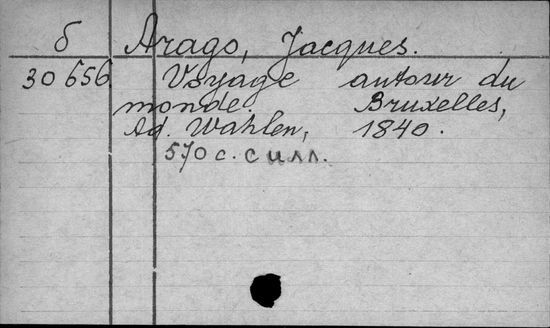 б Arago, Jacques.
30656 Voyage autour du
monde. Bruxelles,
Ad. Wahlen, 1840.
570 с. с илл.